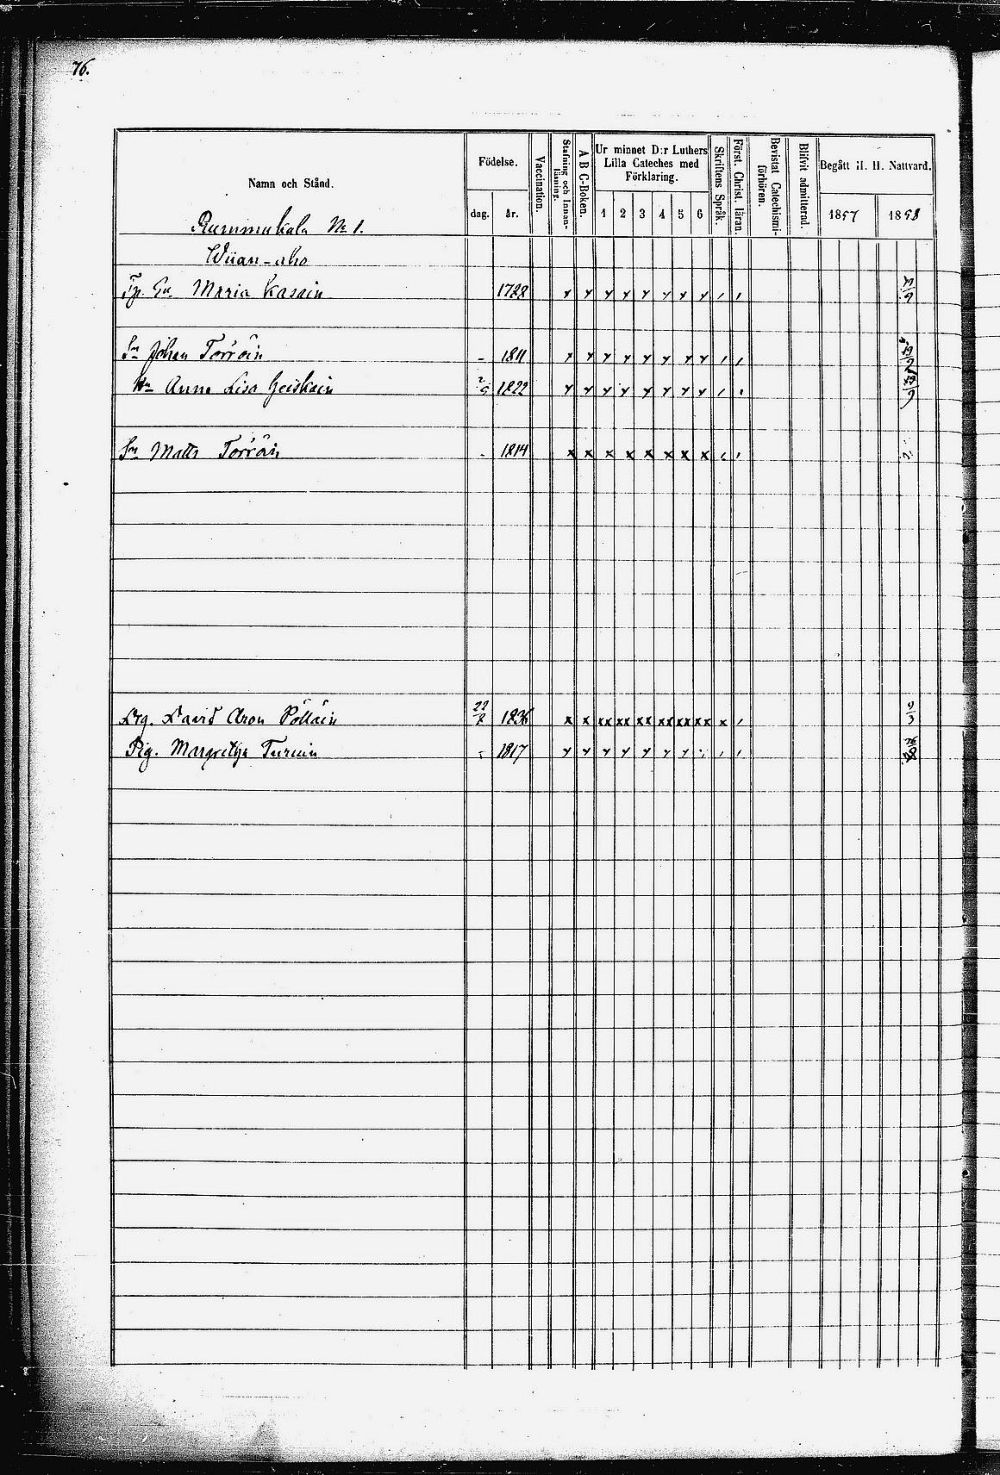 76.
Namn och Stånd.
Födelse.
dag. år.
Vaccination.
Stafning och Innanläsning.
A B C-Boken.
Ur minnet D:r Luthers Lilla Cateches med Förklaring.
1 2 3 4 5 6
Skriftens Språk.
Först. Christ. läran.
Bevistat Catechismi-förhören.
Blifvit admitterad.
Begått H. H. Nattvard.
1857 1858
Rummukala No 1.
Wiian-aho
Maria Kasain 1728 x x x x x x x x
Sn Johan Torröin - 1811 x x x x x x x x
Hu Anna Lisa 1822 x x x x x x x x
Sn Matts Torröin - 1814 x x x x x x x x
Drg. David Aron Pöllöin 1836 x x xx xx xx xx xx xx x
Pig. Margretha Turuin - 1817 x x x x x x x